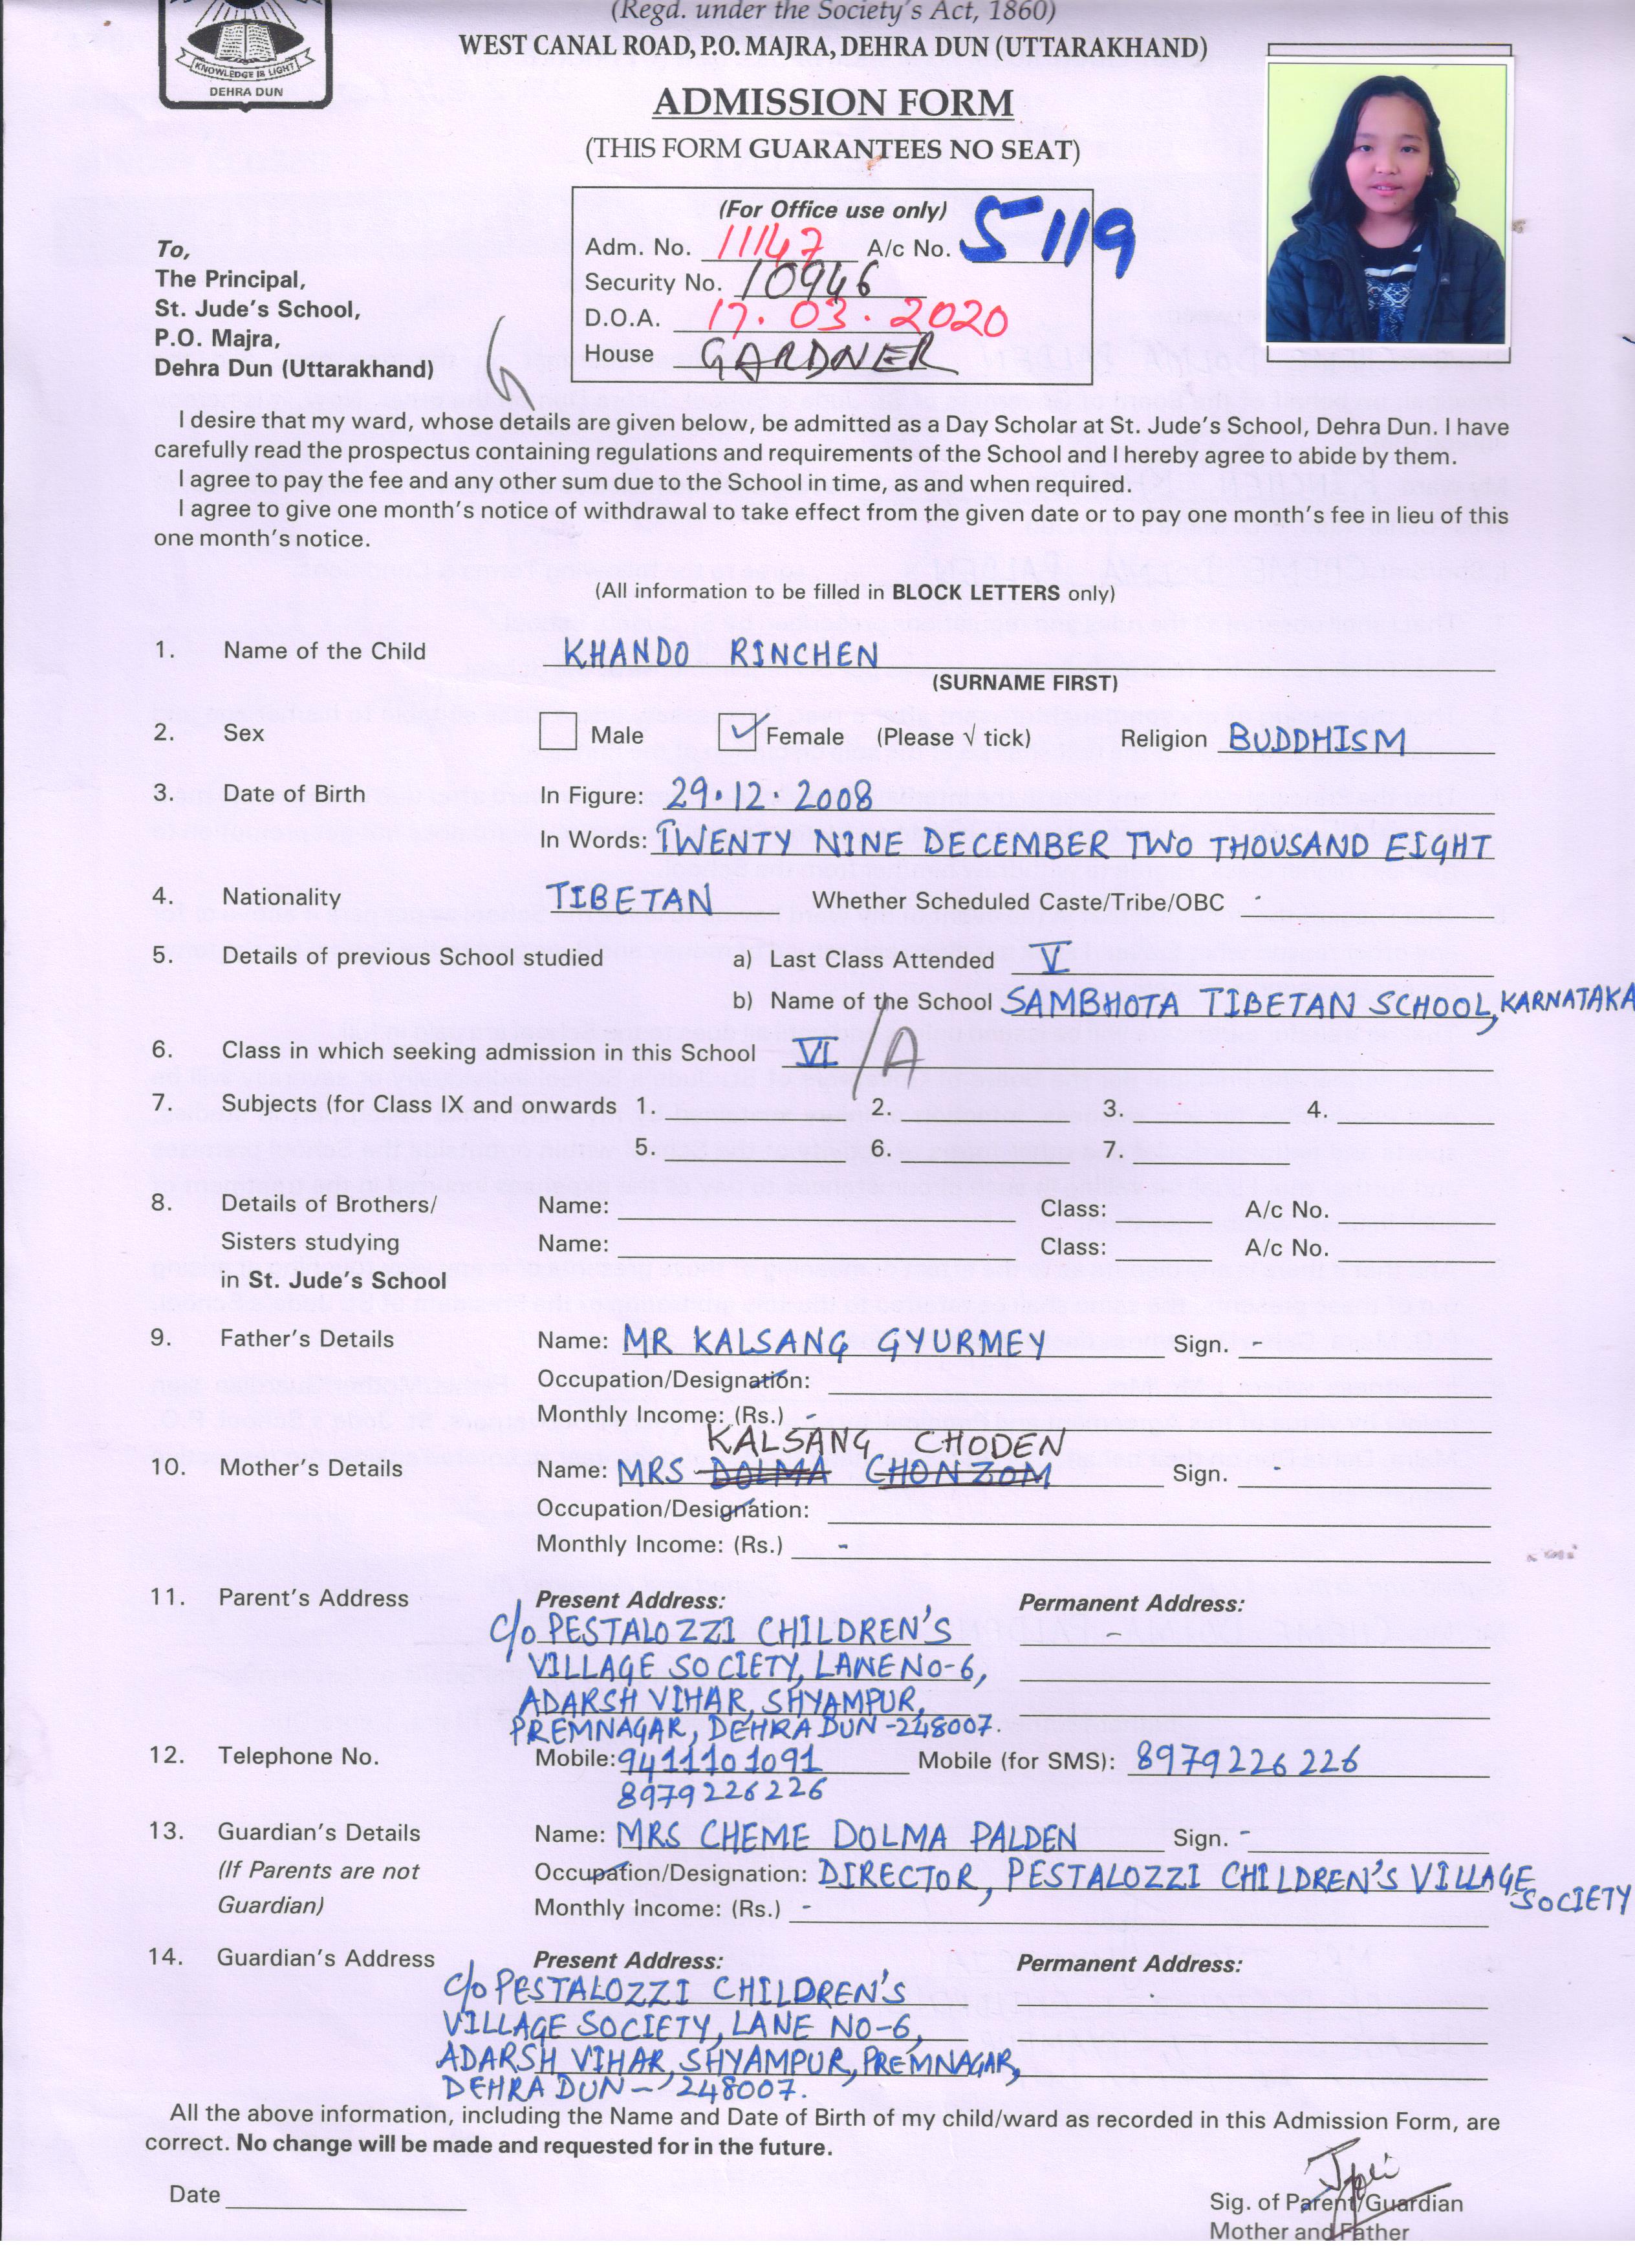 (Regd. under the Society's Act, 1860)
WEST CANAL ROAD, P.O. MAJRA, DEHRA DUN (UTTARAKHAND)
KNOWLEDGE IS LIGHT
DEHRA DUN
ADMISSION FORM
(THIS FORM GUARANTEES NO SEAT)
(For Office use only)
Adm. No. 11147 A/c No. 5119
Security No. 10946
D.O.A. 17.03.2020
House GARDNER
To,
The Principal,
St. Jude's School,
P.O. Majra,
Dehra Dun (Uttarakhand)
I desire that my ward, whose details are given below, be admitted as a Day Scholar at St. Jude's School, Dehra Dun. I have
carefully read the prospectus containing regulations and requirements of the School and I hereby agree to abide by them.
I agree to pay the fee and any other sum due to the School in time, as and when required.
I agree to give one month's notice of withdrawal to take effect from the given date or to pay one month's fee in lieu of this
one month's notice.
(All information to be filled in BLOCK LETTERS only)
1. Name of the Child KHANDO RINCHEN
(SURNAME FIRST)
2. Sex Male ✓ Female (Please √ tick) Religion BUDDHISM
3. Date of Birth In Figure: 29.12.2008
In Words: TWENTY NINE DECEMBER TWO THOUSAND EIGHT
4. Nationality TIBETAN Whether Scheduled Caste/Tribe/OBC -
5. Details of previous School studied a) Last Class Attended V
b) Name of the School SAMBHOTA TIBETAN SCHOOL, KARNATAKA
6. Class in which seeking admission in this School VI/A
7. Subjects (for Class IX and onwards 1. 2. 3. 4.
5. 6. 7.
8. Details of Brothers/ Name: Class: A/c No.
Sisters studying Name: Class: A/c No.
in St. Jude's School
9. Father's Details Name: MR KALSANG GYURMEY Sign. -
Occupation/Designation:
Monthly Income: (Rs.) -
KALSANG CHODEN
10. Mother's Details Name: MRS DOLMA CHONZOM Sign. -
Occupation/Designation:
Monthly Income: (Rs.) -
11. Parent's Address Present Address: Permanent Address:
C/o PESTALOZZI CHILDREN'S -
VILLAGE SOCIETY, LANE No-6,
ADARSH VIHAR, SHYAMPUR,
PREMNAGAR, DEHRA DUN-248007.
12. Telephone No. Mobile: 9411101091 Mobile (for SMS): 8979226226
8979226226
13. Guardian's Details Name: MRS CHEME DOLMA PALDEN Sign. -
(If Parents are not Occupation/Designation: DIRECTOR, PESTALOZZI CHILDREN'S VILLAGE SOCIETY
Guardian) Monthly Income: (Rs.) -
14. Guardian's Address Present Address: Permanent Address:
C/o PESTALOZZI CHILDREN'S
VILLAGE SOCIETY, LANE NO-6,
ADARSH VIHAR, SHYAMPUR, PREMNAGAR,
DEHRA DUN - 248007.
All the above information, including the Name and Date of Birth of my child/ward as recorded in this Admission Form, are
correct. No change will be made and requested for in the future.
Date
Sig. of Parent/Guardian
Mother and Father